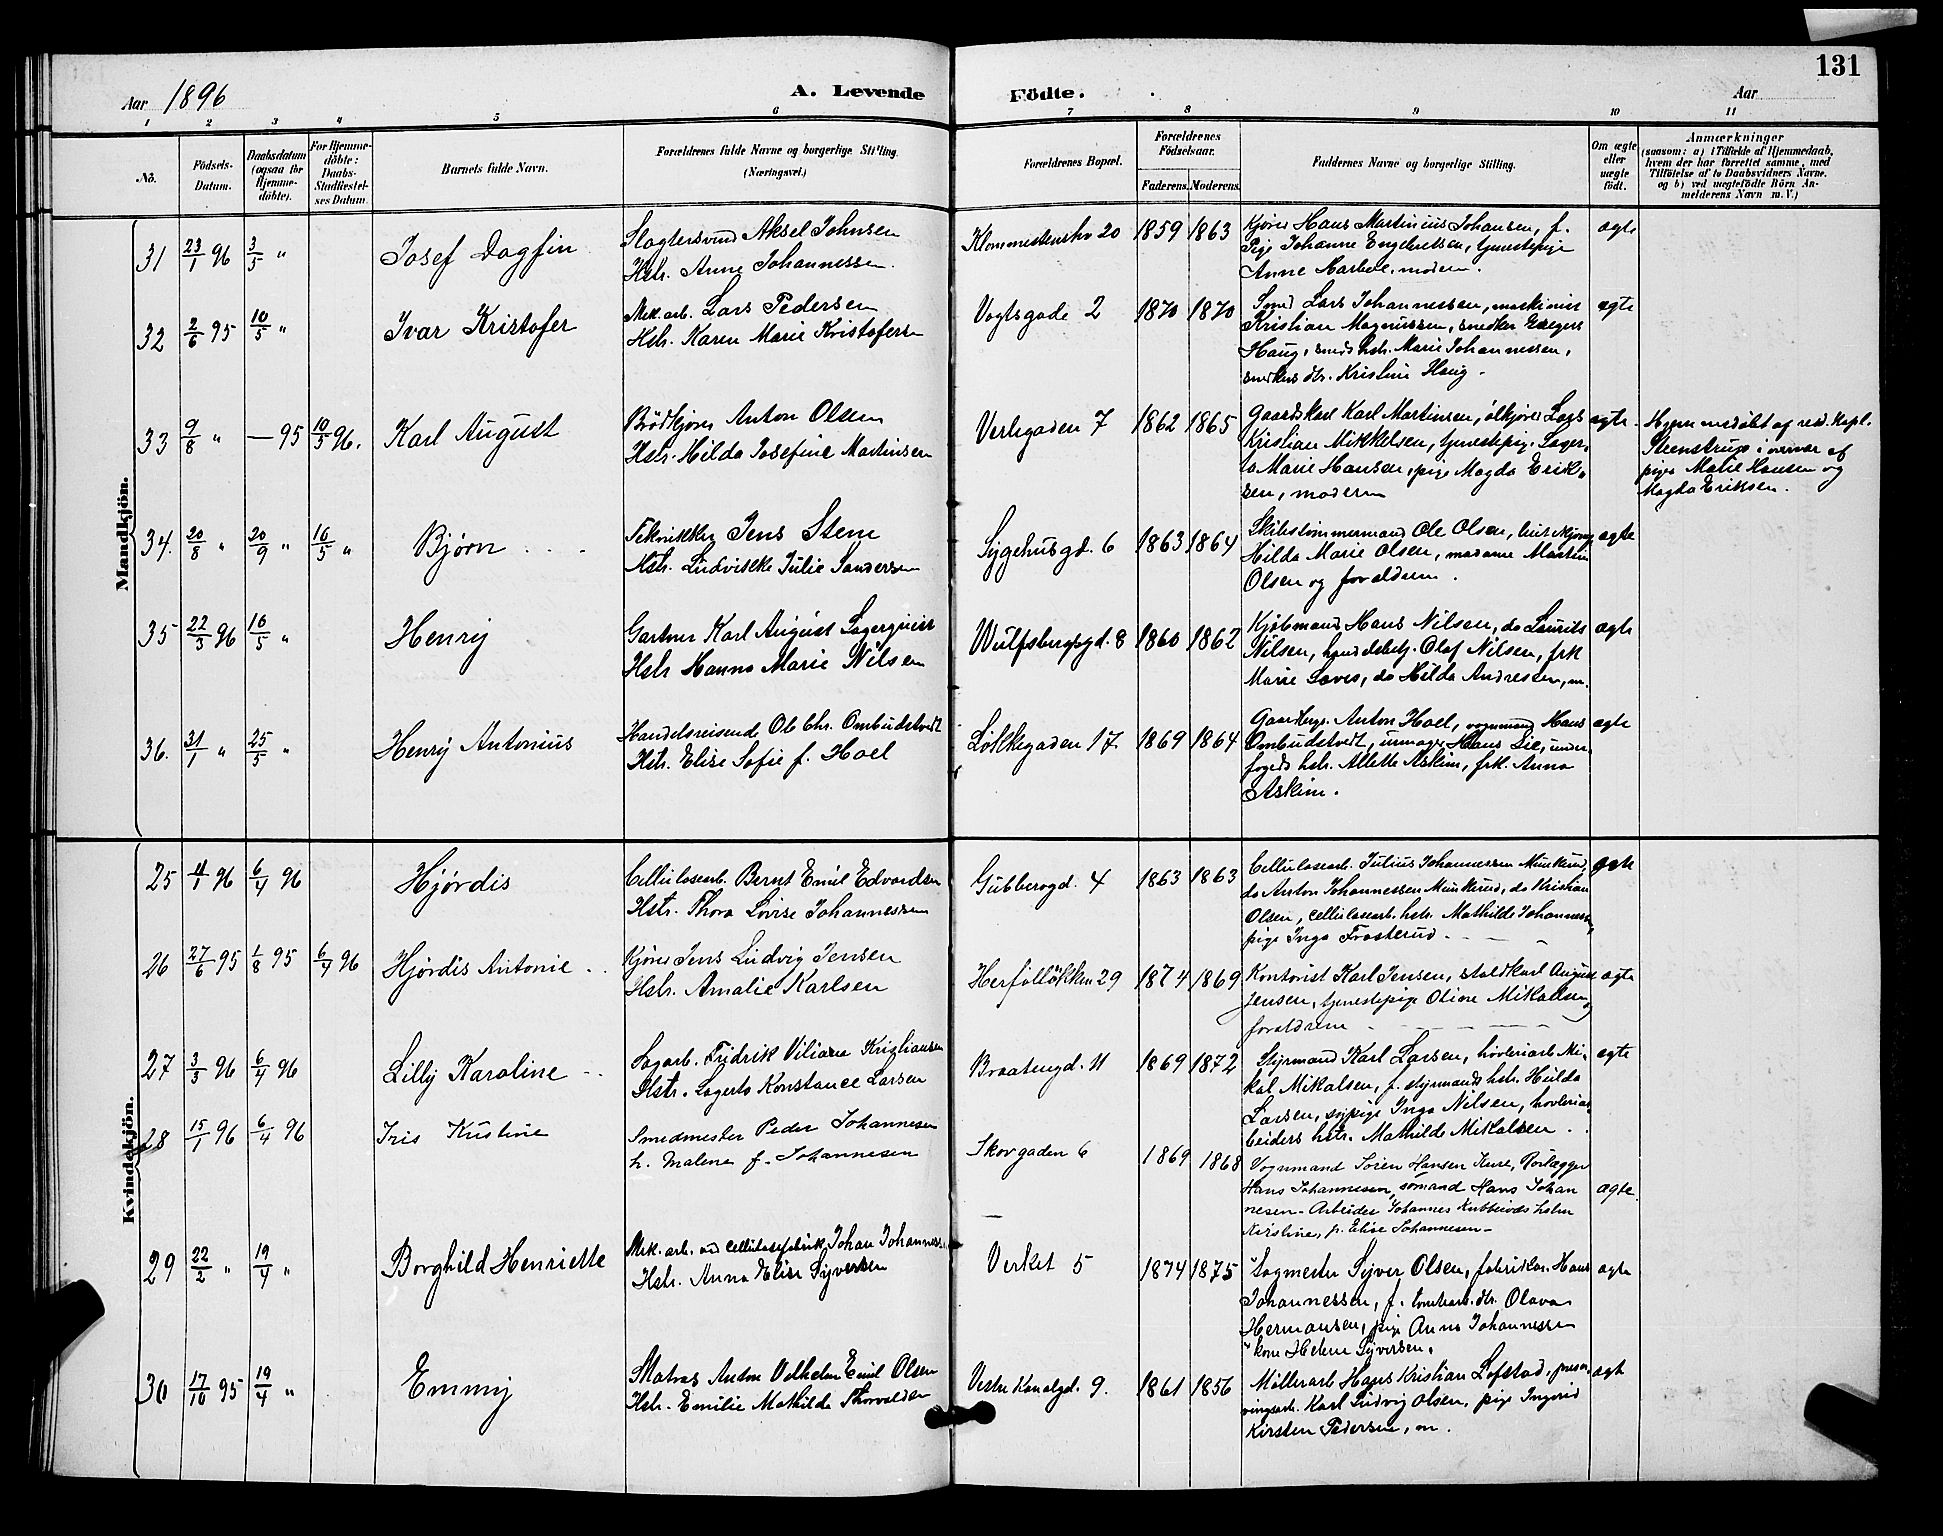 131
Aar 1896
A. Levende Födte.
Aar
1 2 3 4 5 6 7 8 9 10 11
No.
Födsels-
Datum.
Daabsdatum
(ogsaa for
Hjemme-
döbte).
For Hjemme-
döbte:
Daabs-
Stadfæstel-
ses Datum.
Barnets fulde Navn.
Forældrenes fulde Navne og borgerlige Stilling.
(Næringsvei.)
Forældrenes Bopæl.
Forældrenes
Födselsaar.
Faderens. Moderens.
Faddernes Navne og borgerlige Stilling.
Om ægte
eller
uægte
födt.
Anmærkninger
(saasom: a) i Tilfælde af Hjemmedaab,
hvem der har forrettet samme, med
Tilföielse af to Daabsvidners Navne.
og b) ved uægtefödte Börn An-
melderens Navn m. V.)
Mandkjön.
31 23/1 96 3/5 "
Josef Dagfin
Slagtersvend Aksel Johnsen
Hstr. Anne Johannessen.
20 1859 1863
Kjører Hans Martinius Johansen, f.
Pige Johanne Engebretsen, tjenestepige
Anne moderen.
ægte
32 2/6 95 10/5 "
Ivar Kristofer
Mek. arb. Lars Pedersen
Hstr. Karen Marie Kristofersen
Vogtsgade 2 1870 1870
Smed Lars Johannessen, maskinist
Kristian Magnussen, snedker
Haug, smeds hstr. Marie Johannessen,
snedkers dtr. Kristine Haug.
ægte
33 9/8 " — 95 10/5 96.
Karl August
Brödkjører Anton Olsen
Hstr. Hilda Josefine Martinsen
Verksgaden 7 1862 1865
Gaardskarl Karl Martinsen, ølkjører Lars
Kristian Mikkelsen, tjenestepig. Lager-
ta Marie Hansen, pige Magda Erik-
sen, moderen
ægte.
Hjemmedøbt af resd. kapl.
Steenstrup i overvær af
pige Marie Hansen og
Magda Eriksen.
34. 20/8 " 20/9 " 16/5 "
Bjørn
Tekniker Jens Steen
Hstr. Ludvikke Julie Sandersen
Sygehusgd. 6 1863 1864
Skibstømmermand Ole Olsen,
Hilda Marie Olsen, madame Martin
Olsen og forældrene.
ægte
35 22/3 96 16/5 "
Henry
Gartner Karl August Lagerquist
Hstr Hanna Marie Nilsen
Wulfsbergsgd. 8 1860 1862
Kjøbmand Hans Nilsen, do Laurits
Nilsen, handelsbetj. Olaf Nilsen, frk
Marie do Hilda Andressen, m.
ægte
36. 31/1 " 25/5 "
Henry Antonius
Handelsreisende Ole Chr. Ombudstvedt
Hstr. Elise Sofie f. Hoel
Løkkegaden 17. 1869 1864
Gaardbrgr. Anton Hoel, vognmand Hans
Ombudstvedt, urmager Hans Lie, under-
fogeds hstr. Alette Askim, frk. Anna
Askim.
ægte
Kvindekjön.
25 4/1 96 6/4 96
Hjørdis
Cellulosearb. Bernt Emil Edvardsen
Hstr. Thora Lovise Johannessen
Gubberogd. 4 1863 1863
Cellulosearb. Julius Johannessen Munkerud,
do Anton Johannessen Munkerud, do Kristian
Olsen, cellulosearb. hstr. Mathilde Johannessen,
pige Inga Frosterud.
ægte
26 27/6 95 1/8 95 6/4 96
Hjørdis Antonie
Kjører Jens Ludvig Jensen
Hstr. Amalie Karlsen
Herfølløkken 29 1874 1869
Kontorist Karl Jensen, staldkarl August
Jensen, tjenestepige Oline Mikalsen og
forældrene
ægte
27 3/3 96 6/4 96
Lilly Karoline
Sagarb. Fridrik Viliam Kristiansen
Hstr. Lagerta Konstance Larsen
Braatengd. 11 1869 1872
Styrmand Karl Larsen, høvleriarb Mi-
kal Mikalsen, f. styrmands hstr. Hulda
Larsen, sypige Inga Nilsen, høvleriar-
beiders hstr. Mathilde Mikalsen.
ægte
28 15/1 96 6/4 96
Iris Kristine
Smedmester Peder Johannesen
h. Malene f. Johannesen
Skovgaden 6 1869 1868
Vognmand Søren Hansen Kure, Rørlægger
Hans Johannesen, sømand Hans Johan
nesen - Arbeider Johannes hstru
Kirstine, p. Elise Johannesen -
ægte.
29 22/2 " 19/4 "
Borghild Henriette
Mek. arb. ved cellulosefabrik Johan Johannessen
Hstr. Anna Elise Syversen
Verket 5 1874 1875
Sagmester Syver Olsen, fabrikar. Hans
Johannessen, f. tomtearb. dtr. Olava
Hermansen, pige Anna Johannessen
kone Helene Syversen.
ægte
30 17/10 95 19/4 "
Emmy
Matros Anton Vilhelm Emil Olsen
Hstr. Emilie Mathilde Thorvaldsen
Vestre Kanalgd. 9. 1861 1856
Møllerarb Hans Kristian Lofstad,
Karl Ludvig Olsen, pige Ingerid
Kirsten Pedersen, m.
ægte